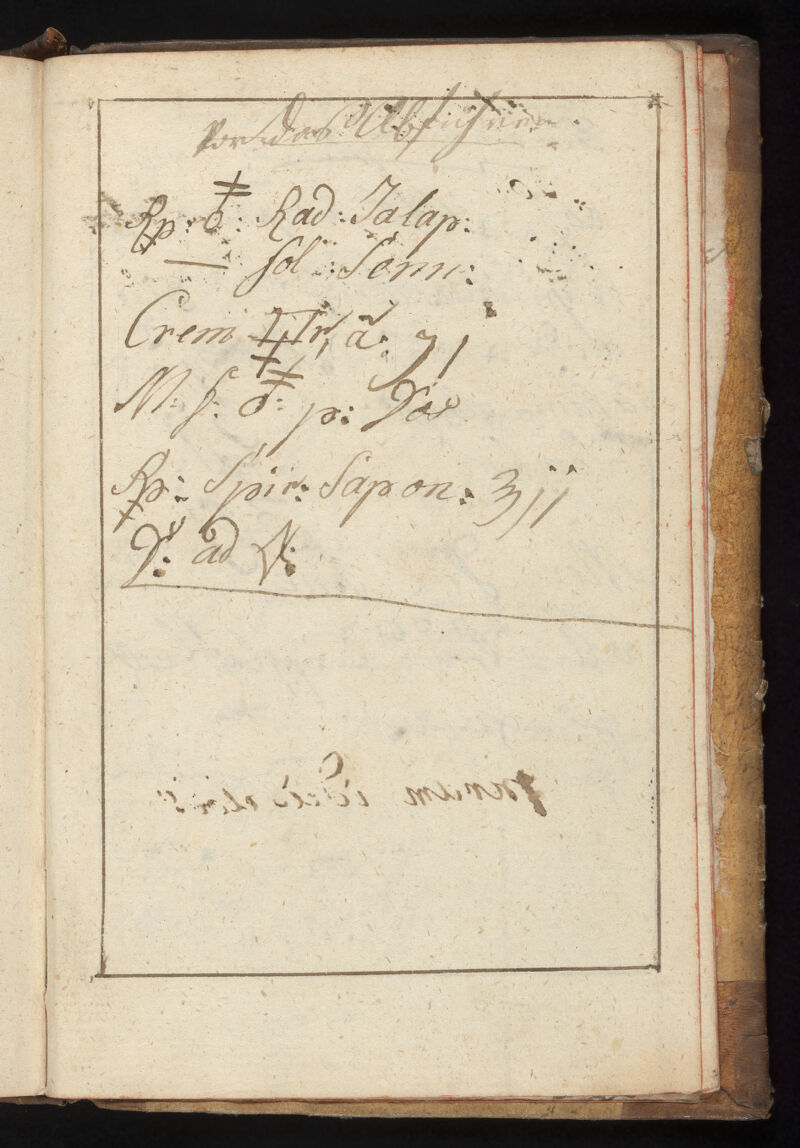 Vor das Abführen.
Rp: ♁: Rad: Jalap:
— fol: Senn:
Crem ♃ Tr, ā: ʒ j
M: f: ♁: p: Dos
Rp: Spir: Sapon: ʒ jj
D: ad V: